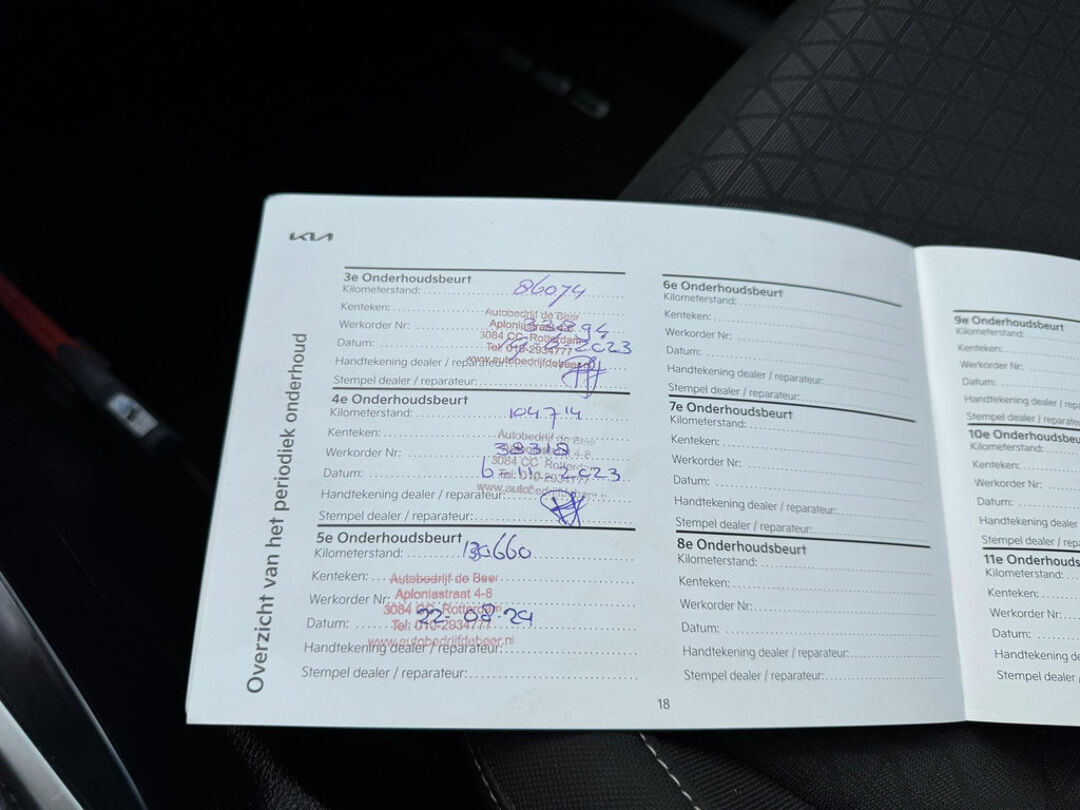 KIA
Overzicht van het periodiek onderhoud
3e Onderhoudsbeurt
Kilometerstand: 86074
Kenteken:
Autobedrijf de Beer
Werkorder Nr:
Aploniastraat 4-8
3084 CC Rotterdam
Datum: 2023
Tel: 010-2934777
Handtekening dealer / reparateur:
www.autobedrijfdebeer.nl
Stempel dealer / reparateur:
4e Onderhoudsbeurt
Kilometerstand: 104714
Kenteken:
Autobedrijf de Beer
Werkorder Nr: 38318
4-8
3084 CC Rotterdam
Datum: 6-11-2023
Tel: 010-2934777
Handtekening dealer / reparateur:
www.autobedrijfdebeer.nl
Stempel dealer / reparateur:
5e Onderhoudsbeurt
Kilometerstand: 130660
Kenteken:
Autobedrijf de Beer
Aploniastraat 4-8
Werkorder Nr:
3084 CC Rotterdam
Datum: 22-08-24
Tel: 010-2934777
www.autobedrijfdebeer.nl
Handtekening dealer / reparateur:
Stempel dealer / reparateur:
6e Onderhoudsbeurt
Kilometerstand:
Kenteken:
Werkorder Nr:
Datum:
Handtekening dealer / reparateur:
Stempel dealer / reparateur:
7e Onderhoudsbeurt
Kilometerstand:
Kenteken:
Werkorder Nr:
Datum:
Handtekening dealer / reparateur:
Stempel dealer / reparateur:
8e Onderhoudsbeurt
Kilometerstand:
Kenteken:
Werkorder Nr:
Datum:
Handtekening dealer / reparateur:
Stempel dealer / reparateur:
18
9e Onderhoudsbeurt
Kilometerstand:
Kenteken:
Werkorder Nr:
Datum:
Handtekening dealer / rep
Stempel dealer / reparate
10e Onderhoudsbeu
Kilometerstand:
Kenteken:
Werkorder Nr:
Datum:
Handtekening dealer
Stempel dealer / rep
11e Onderhouds
Kilometerstand:
Kenteken:
Werkorder Nr:
Datum:
Handtekening de
Stempel dealer /